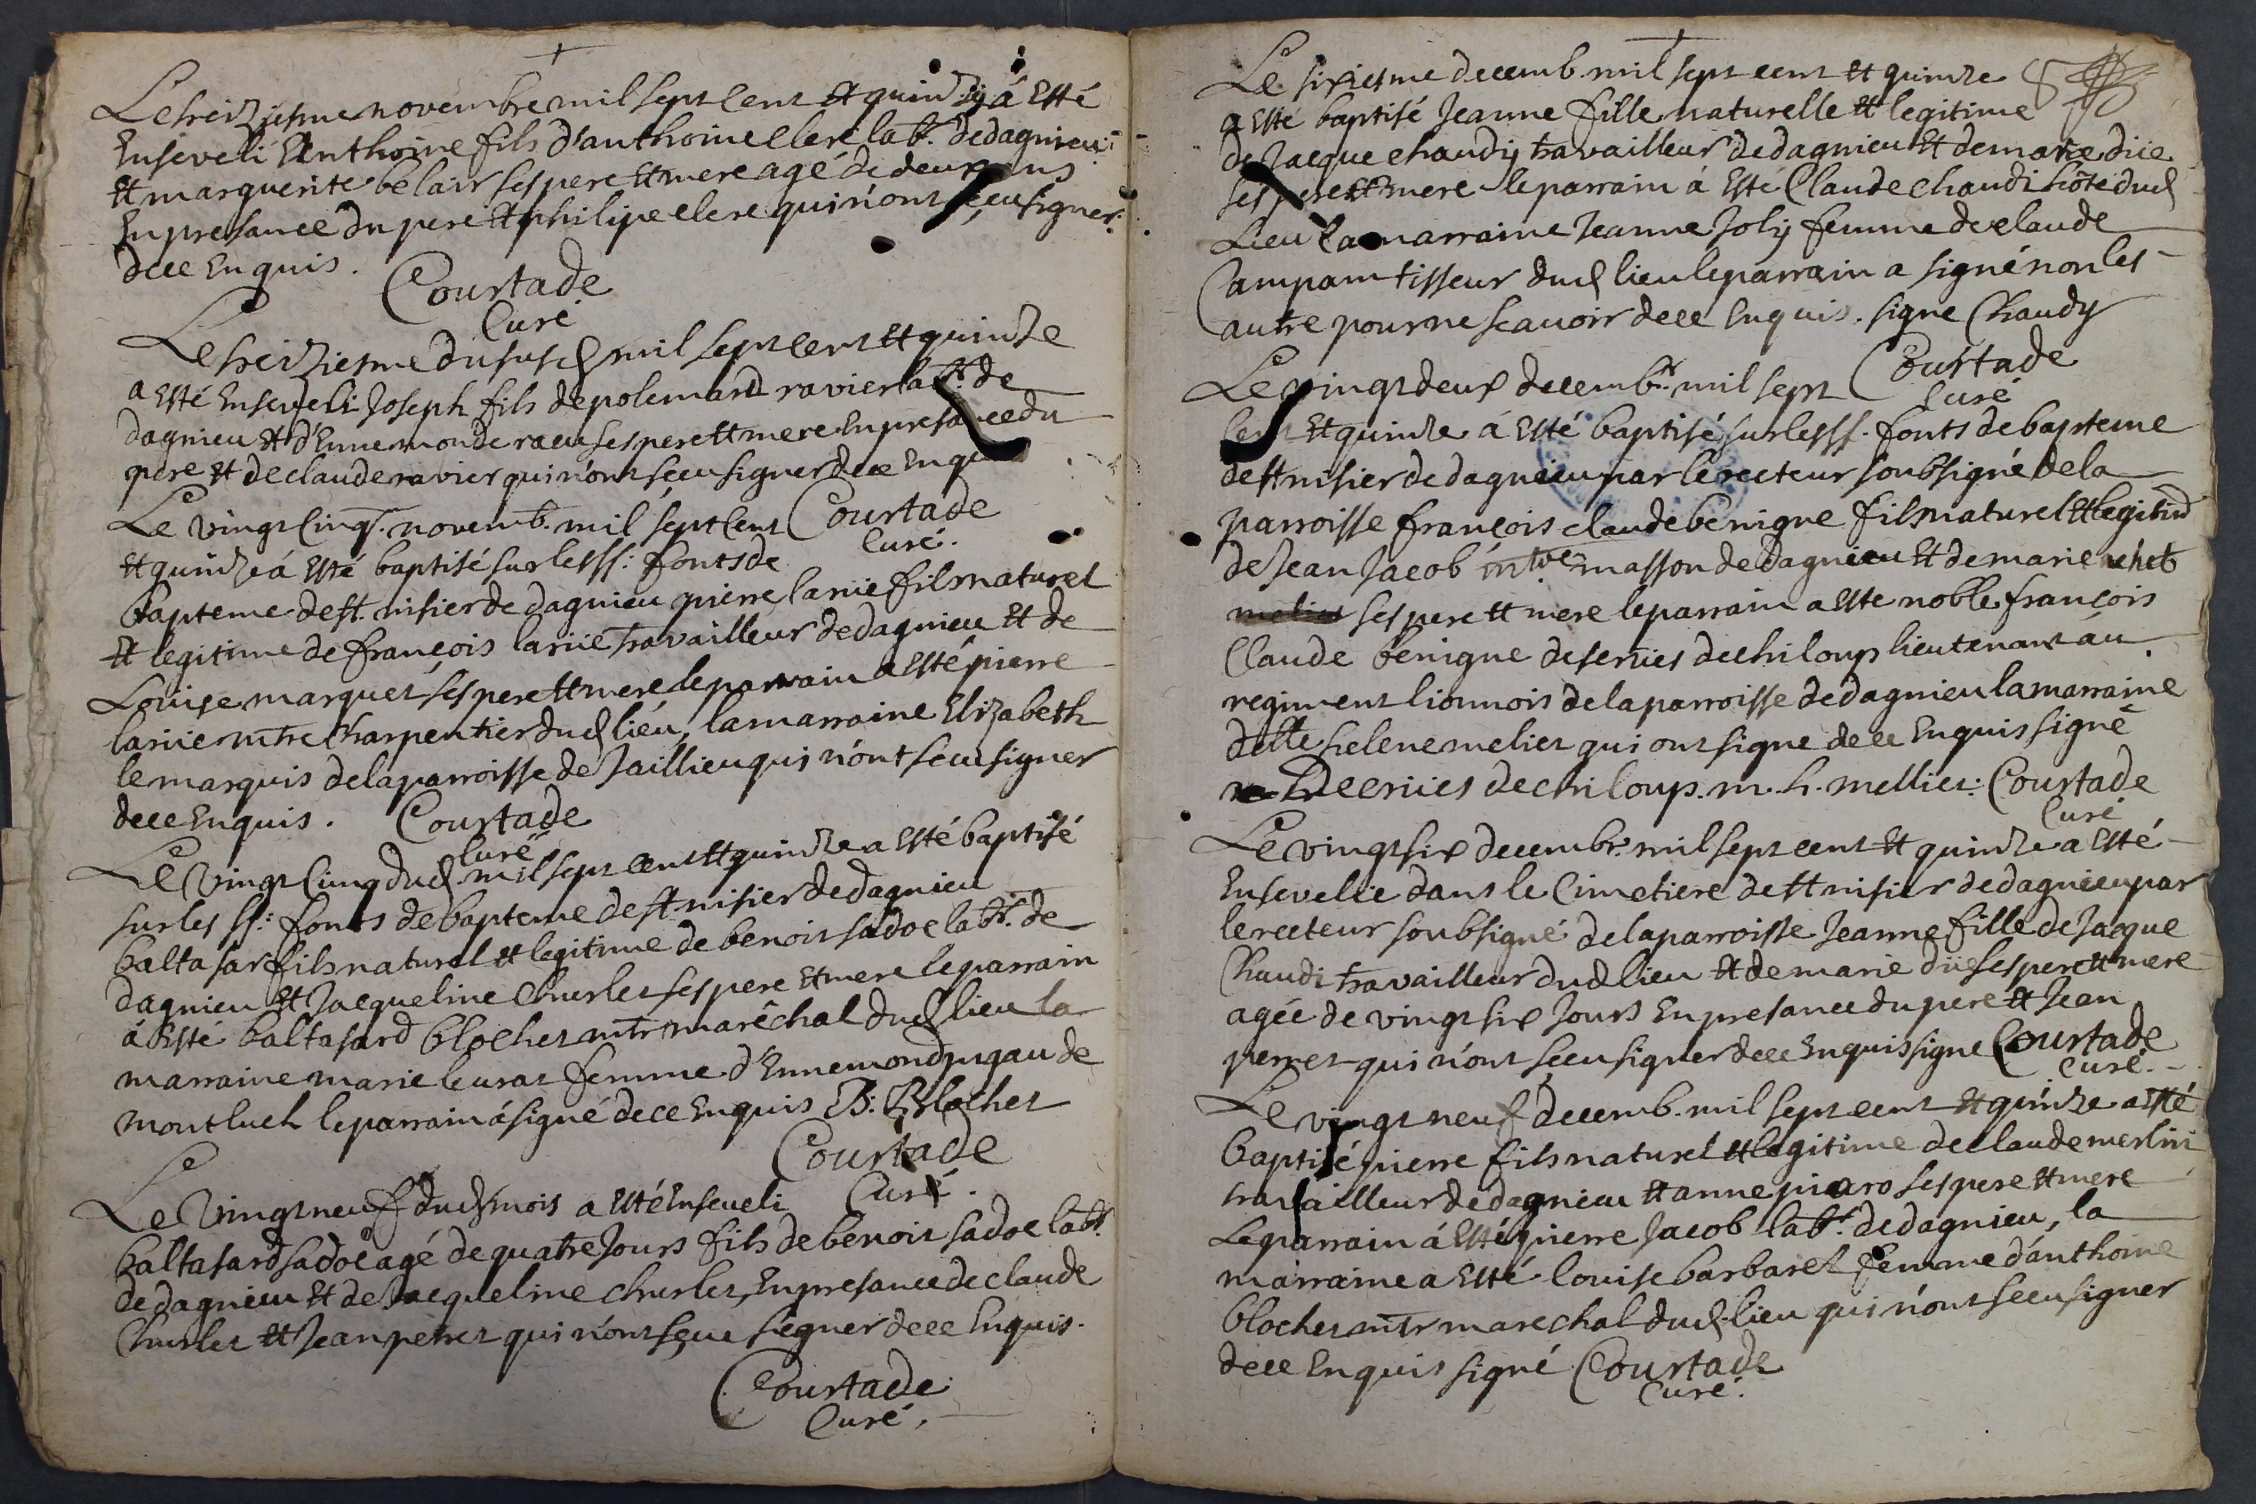 Le treiziesme novembre mil sept cent et quinze á Esté
Enseveli Anthoine fils d'anthoine clere labr. de dagnieu
et marguerite belair ses pere et mere agé de deux ans
En presance du pere et philipe clere qui n'ont sçeu signer
dece Enquis.
Courtade
Curé
Le treiziesme du susd mil sept cent et quinze
a Esté Enseveli Joseph fils de polemard ravier labr. de
dagnieu et d'Ennemonde raeu ses pere et mere En presance du
pere et de claude ravier qui n'ont sceu signer dece Enquis
Le vingt cinq. novemb. mil sept Cent Courtade
Curé.
et quinze á Esté baptisé sur les ss: fonts de
bapteme de st. nisier de dagnieu pierre larüe fils naturel
et legitime de françois larüe travailleur de dagnieu et de
Louise marquet ses pere et mere le parrain a Esté pierre
larüe mtre Charpentier dud lieu, la marraine Elizabeth
le marquis de la parroisse de Jaillieu qui n'ont sceu signer
dece Enquis. Courtade
Curé
Le Vingt Cinq dud. mil sept cent et quinze a Esté baptisé
sur les ss: fonts de bapteme de st nisier de dagnieu
baltasar fils naturel et legitime de benoit sadoc labr. de
dagnieu et Jacqueline Churlet ses pere et mere le parrain
á Esté baltasard blochet mtr maréchal dud lieu la
marraine marie leurat femme d'Ennemond pugau de
montluel le parrain á signé dece Enquis B: Blochet
Courtade
Curé.
Le Vingt neuf dud mois a Esté Enseveli
baltasard sadoc agé de quatre Jours fils de benoit sadoc labr.
de dagnieu et de Jacqueline churlet, En presance de claude
Churlet et Jean perret qui n'ont sçeu signer dece Enquis.
Courtade
Curé.
Le sixiesme decemb. mil sept cent et quinze
a Esté baptisé Jeanne fille naturelle et legitime
de Jacque chaudy travailleur de dagnieu et de marie düe
ses pere et mere le parrain á Esté Claude chaudi hôte dud
Lieu la marraine Jeanne Joly femme de claude
Campant tisseur dud lieu le parrain a signé non les
autre pour ne scavoir dece Enquis. signe Chaudy
Courtade
Curé
Le vingt deux decembr. mil sept
Cent et quinze á Esté baptisé sur les ss. fonts de bapteme
de st nisier de dagnieu par le recteur soubsigné de la
parroisse françois claude bénigne fils naturel et legitime
de Jean Jacob mtre masson de dagnieu et de marie
ses pere et mere le parrain a esté noble françois
Claude bénigne deserües dechiloup lieutenant áu
regiment lionnois de la parroisse de dagnieu la marraine
delle helene melier qui ont signe dece Enquis signé
Decrües dechiloup. m. h. mellier: Courtade
Curé
Le vingt six decembr. mil sept cent et quinze a Esté
Ensevelie dans le Cimetiere de st nisier de dagnieu par
le recteur soubsigné de la parroisse Jeanne fille de Jacque
Chaudi travailleur dud lieu et de marie düe ses pere et mere
agée de vingt six Jours En presance du pere et Jean
perret qui n'ont sçeu signer dece Enquis signe Courtade
Curé.
Le vingt neuf decemb. mil sept cent et quinze a Esté
baptisé pierre fils naturel et legitime de claude merlin
travailleur de dagnieu et anne pisaro ses pere et mere
Le parrain á Esté pierre Jacob labr. de dagnieu, la
marraine a Esté louise barbaret femme d'anthoine
blochet mtr marechal dud. lieu qui n'ont sceu signer
dece Enquis signé Courtade
Curé.